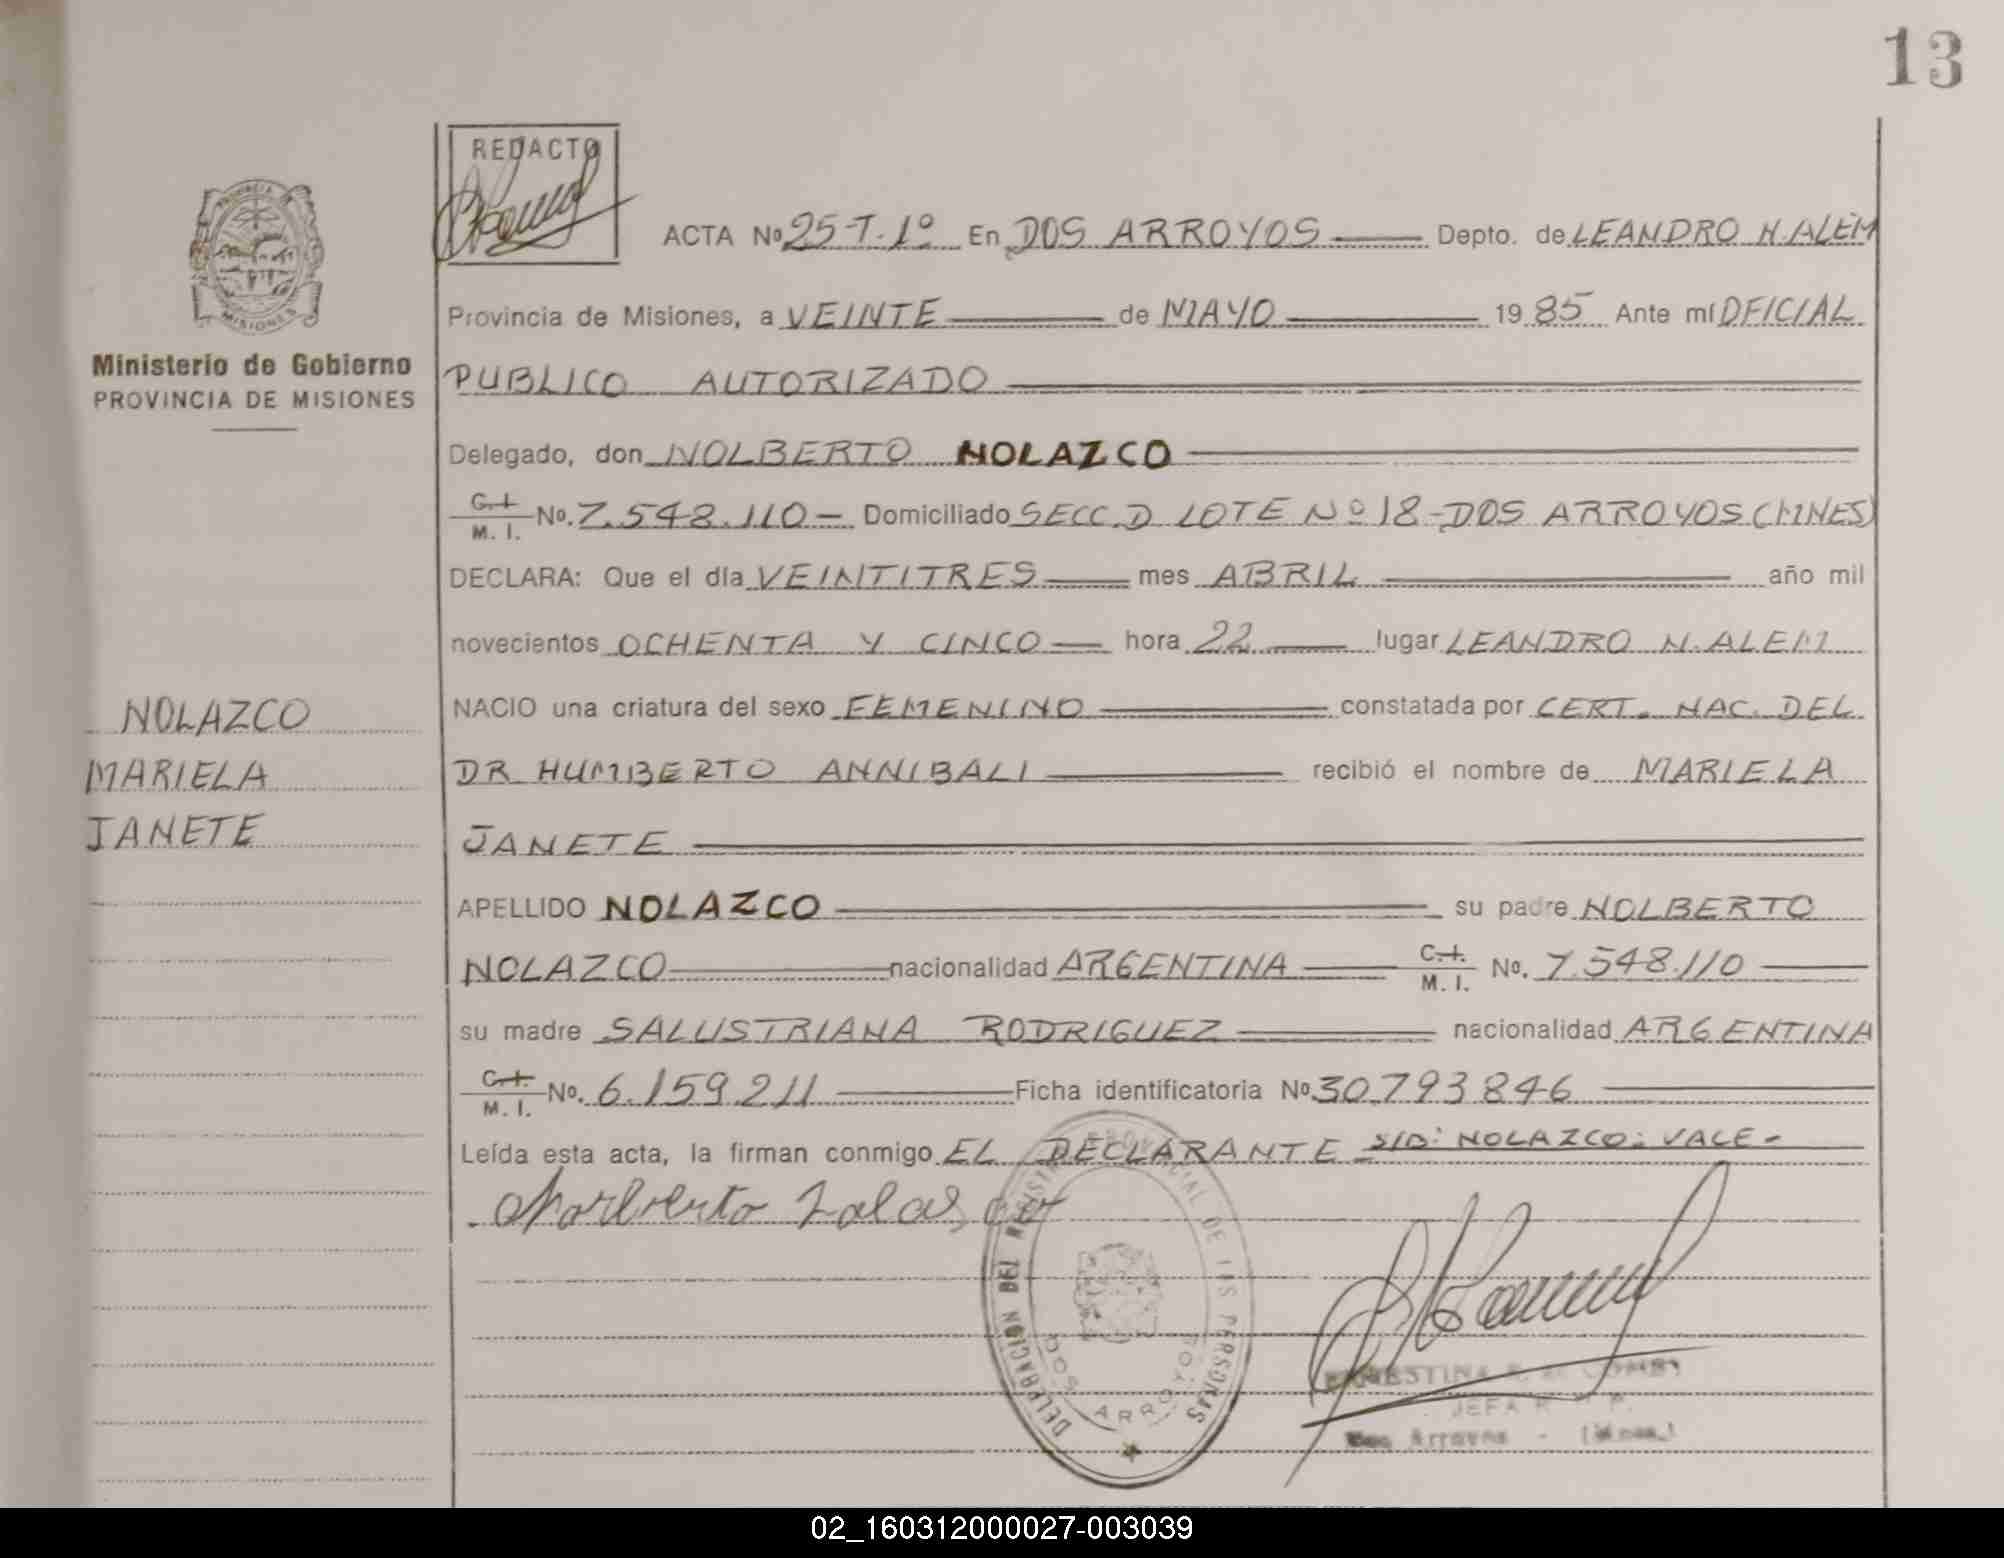 13
REDACTO
ACTA No 25-T.1º En DOS ARROYOS Depto. de LEANDRO N. ALEM
Provincia de Misiones, a VEINTE de MAYO 1985 Ante mí OFICIAL
PUBLICO AUTORIZADO
Ministerio de Gobierno
PROVINCIA DE MISIONES
Delegado, don NOLBERTO NOLAZCO
C.I. M. I. No. 7.548.110 - Domiciliado SECC. D LOTE Nº 18 - DOS ARROYOS (MNES)
DECLARA: Que el día VEINTITRES mes ABRIL año mil
novecientos OCHENTA Y CINCO hora 22 lugar LEANDRO N. ALEM
NACIO una criatura del sexo FEMENINO constatada por CERT. NAC. DEL
DR HUMBERTO ANNIBALI recibió el nombre de MARIELA
JANETE
NOLAZCO
MARIELA
JANETE
APELLIDO NOLAZCO su padre NOLBERTO
NOLAZCO nacionalidad ARGENTINA C.I. M. I. No. 7.548.110
su madre SALUSTRIANA RODRIGUEZ nacionalidad ARGENTINA
C.I. M. I. No. 6.159.211 Ficha identificatoria No 30.793846
Leída esta acta, la firman conmigo EL DECLARANTE S/B: NOLAZCO: VALE-
Norberto Nolasco
DELEGACION DEL REGISTRO PROVINCIAL DE LAS PERSONAS
DOS ARROYOS
ERNESTINA
JEFA
Dos Arroyos - (Mnes.)
02_160312000027-003039